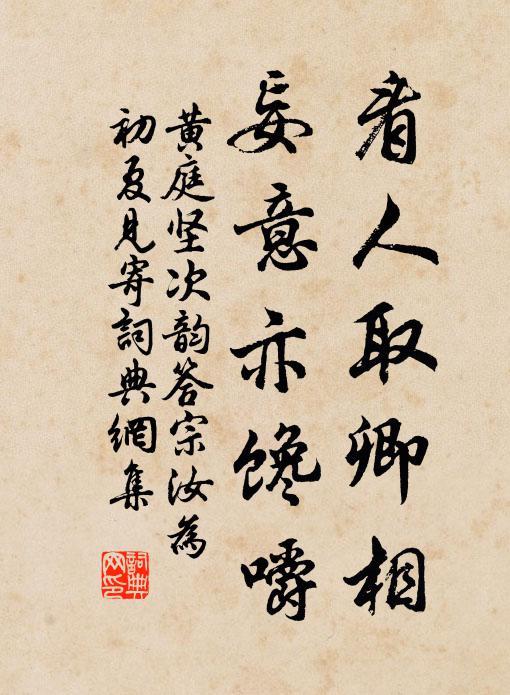 看人取卿相
妄意亦馋嚼
黄庭坚次韵答宗汝为
初夏见寄詞典網集
詞典網印